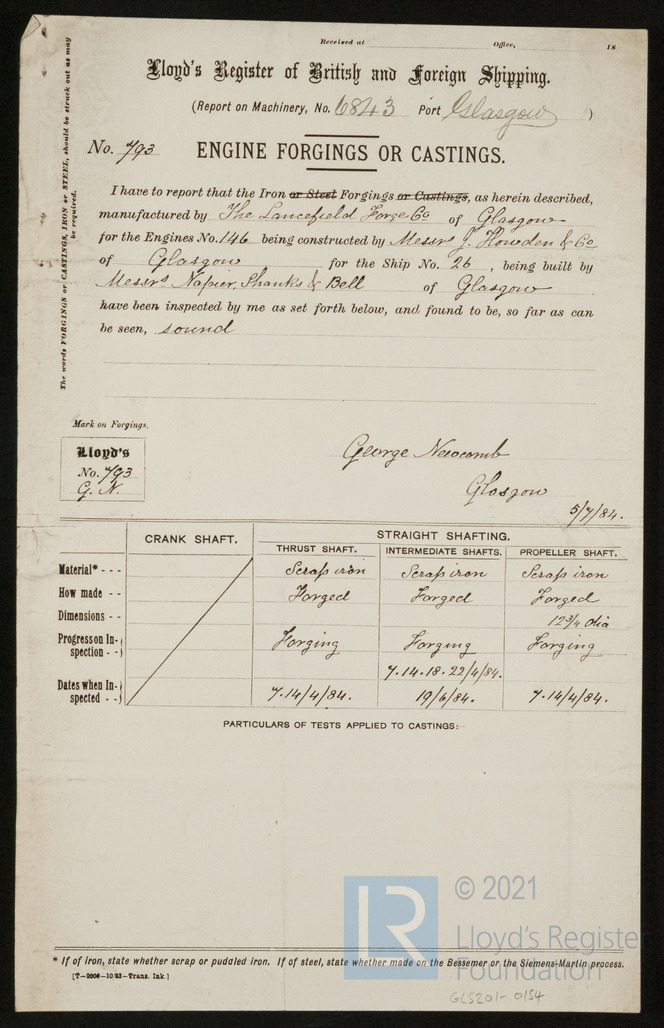 Received at Office, 18
Lloyd's Register of British and Foreign Shipping.
(Report on Machinery, No. 6843 Port Glasgow )
No. 793 ENGINE FORGINGS OR CASTINGS.
The words FORGINGS or CASTINGS, IRON or STEEL, should be struck out as may
be required.
I have to report that the Iron or Steel Forgings or Castings, as herein described,
manufactured by The Lancefield Forge Co of Glasgow
for the Engines No. 146 being constructed by Messrs J. Howden & Co
of Glasgow for the Ship No. 26 , being built by
Messrs Napier, Shanks & Bell of Glasgow
have been inspected by me as set forth below, and found to be, so far as can
be seen, sound
Mark on Forgings.
Lloyd's
No. 793
G. N.
George Newcomb
Glasgow
5/7/84.
CRANK SHAFT. STRAIGHT SHAFTING.
THRUST SHAFT. INTERMEDIATE SHAFTS. PROPELLER SHAFT.
Material* - - - Scrap iron Scrap iron Scrap iron
How made - - Forged Forged Forged
Dimensions - - 12 3/4 dia
Progress on In-
spection - - } Forging Forging Forging
7.14.18.22/4/84.
Dates when In-
spected - - } 7.14/4/84. 19/6/84. 7.14/4/84.
PARTICULARS OF TESTS APPLIED TO CASTINGS:—
LR © 2021
Lloyd's Register
Foundation
* If of iron, state whether scrap or puddled iron. If of steel, state whether made on the Bessemer or the Siemens-Martin process.
[T—2000—10/83—Trans. Ink.]
GLS201-0154